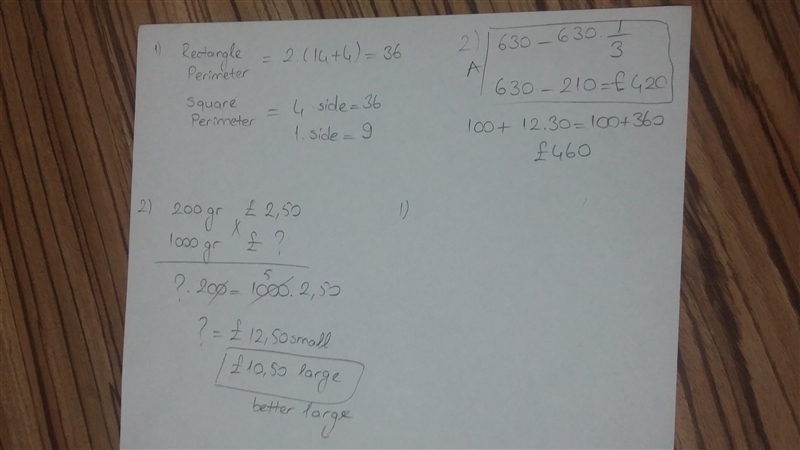 1) Rectangle Perimeter = 2.(14+4) = 36
Square Perimeter = 4 . side = 36
1. side = 9
2) 630 - 630 . 1/3
A
630 - 210 = £420
100 + 12.30 = 100 + 360
£460
2) 200 gr £ 2,50
x
1000 gr £ ?
? . 200 = 1000 . 2,50
5
? = £12,50 small
£10,50 large
better large
1)